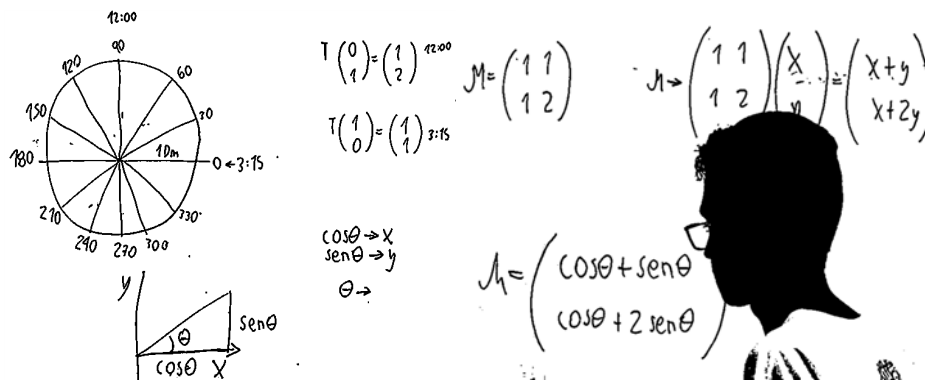 12:00
90
120
60
150
30
180
10m
0 ← 3:15
210
330
240
270
300
y
θ
senθ
cosθ
x
T (0 1) = (1 2) 12:00
T (1 0) = (1 1) 3:15
cosθ → x
senθ → y
θ →
M = (1 1
1 2)
(1 1
1 2) (x
) = (x+y
x+2y)
= (cosθ + senθ
cosθ + 2 senθ)